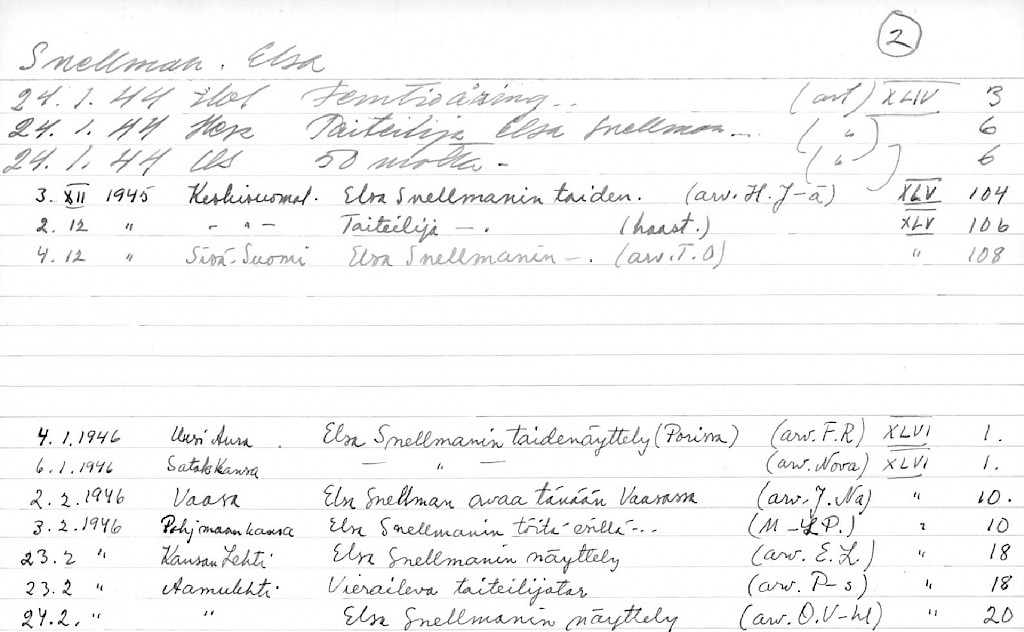 2
Snellman. Elsa
24.1.44 Hbl Femtioåring.. (art) XLIV 3
24.1.44 Taiteilija Elsa Snellman — .. ( " ) 6
24.1.44 US 50 vuotta - ( " ) 6
3. XII 1945 Keskisuomal. Elsa Snellmanin taiden. (arv. H. J-ä) XLV 104
2. 12 " - " - Taiteilija — . (haast.) XLV 106
4. 12 " Sisä-Suomi Elsa Snellmanin — . (arv. T. O) " 108
4.1.1946 Uusi Aura . Elsa Snellmanin taidenäyttely (Porissa) (arv. F.R) XLVI 1.
6.1.1946 Satak Kansa — " — (arv. Nova) XLVI 1.
2.2.1946 Vaasa Elsa Snellman avaa tänään Vaasassa (arv. J. Na) " 10.
3.2.1946 Elsa Snellmanin töitä esillä - - . (M - L P.) " 10
23.2 " Kansan Lehti Elsa Snellmanin näyttely (arv. E. L.) " 18
23.2 " Aamulehti Vieraileva taiteilijatar (arv. P-s) " 18
24.2. " " Elsa Snellmanin näyttely (arv. O.V-hl) " 20